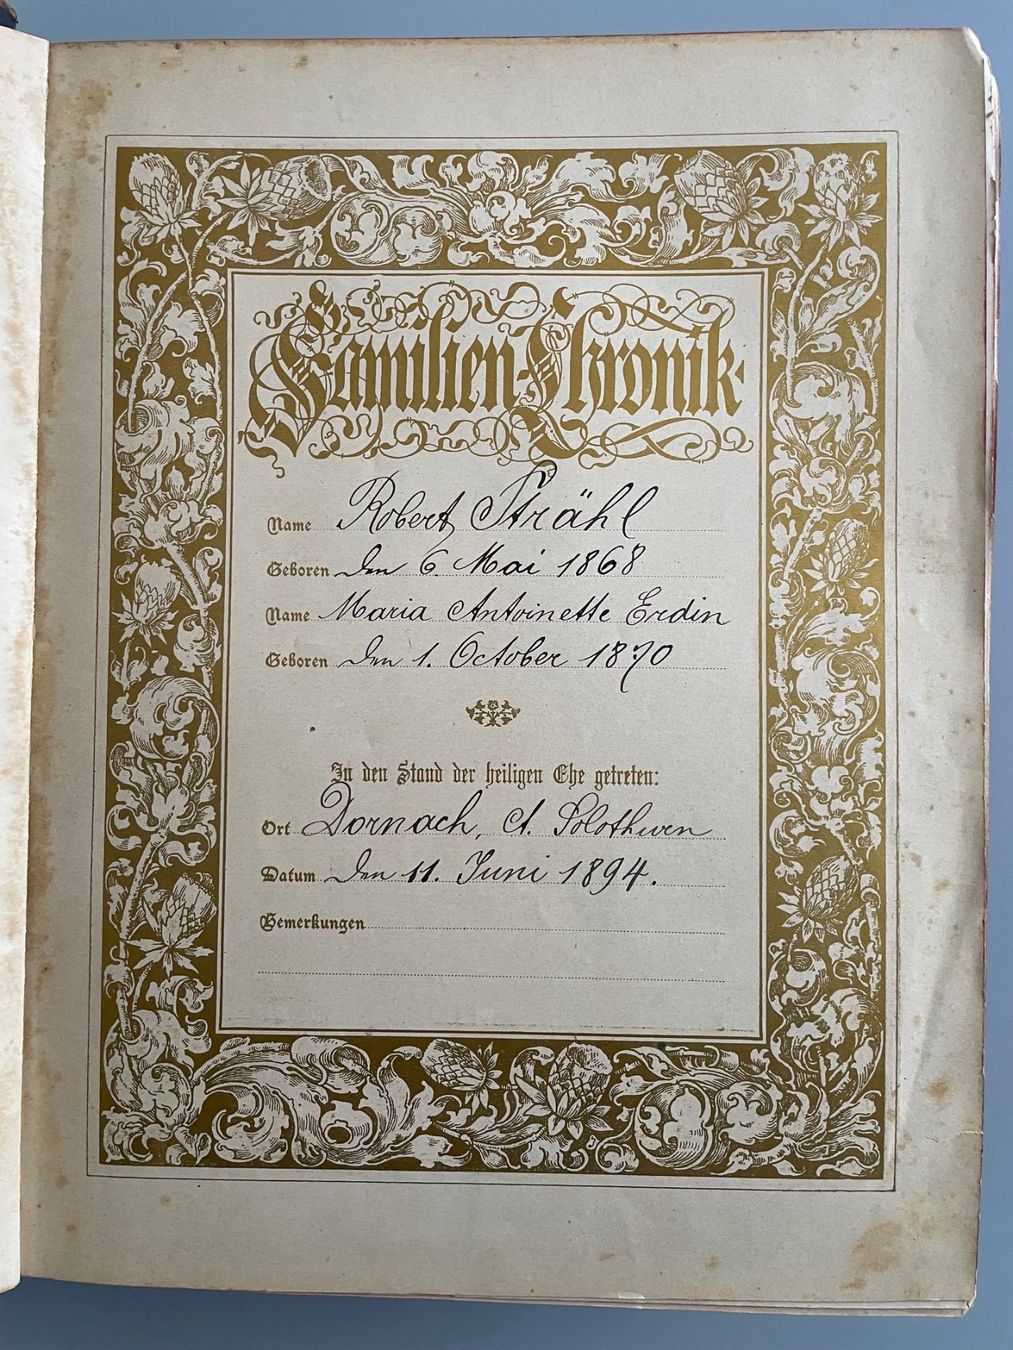 Familien-Chronik.
Name Robert Strähl
Geboren den 6. Mai 1868
Name Maria Antoinette Erdin
Geboren den 1. October 1870
In den Stand der heiligen Ehe getreten:
Ort Dornach, Ct. Solothurn
Datum den 11. Juni 1894.
Bemerkungen